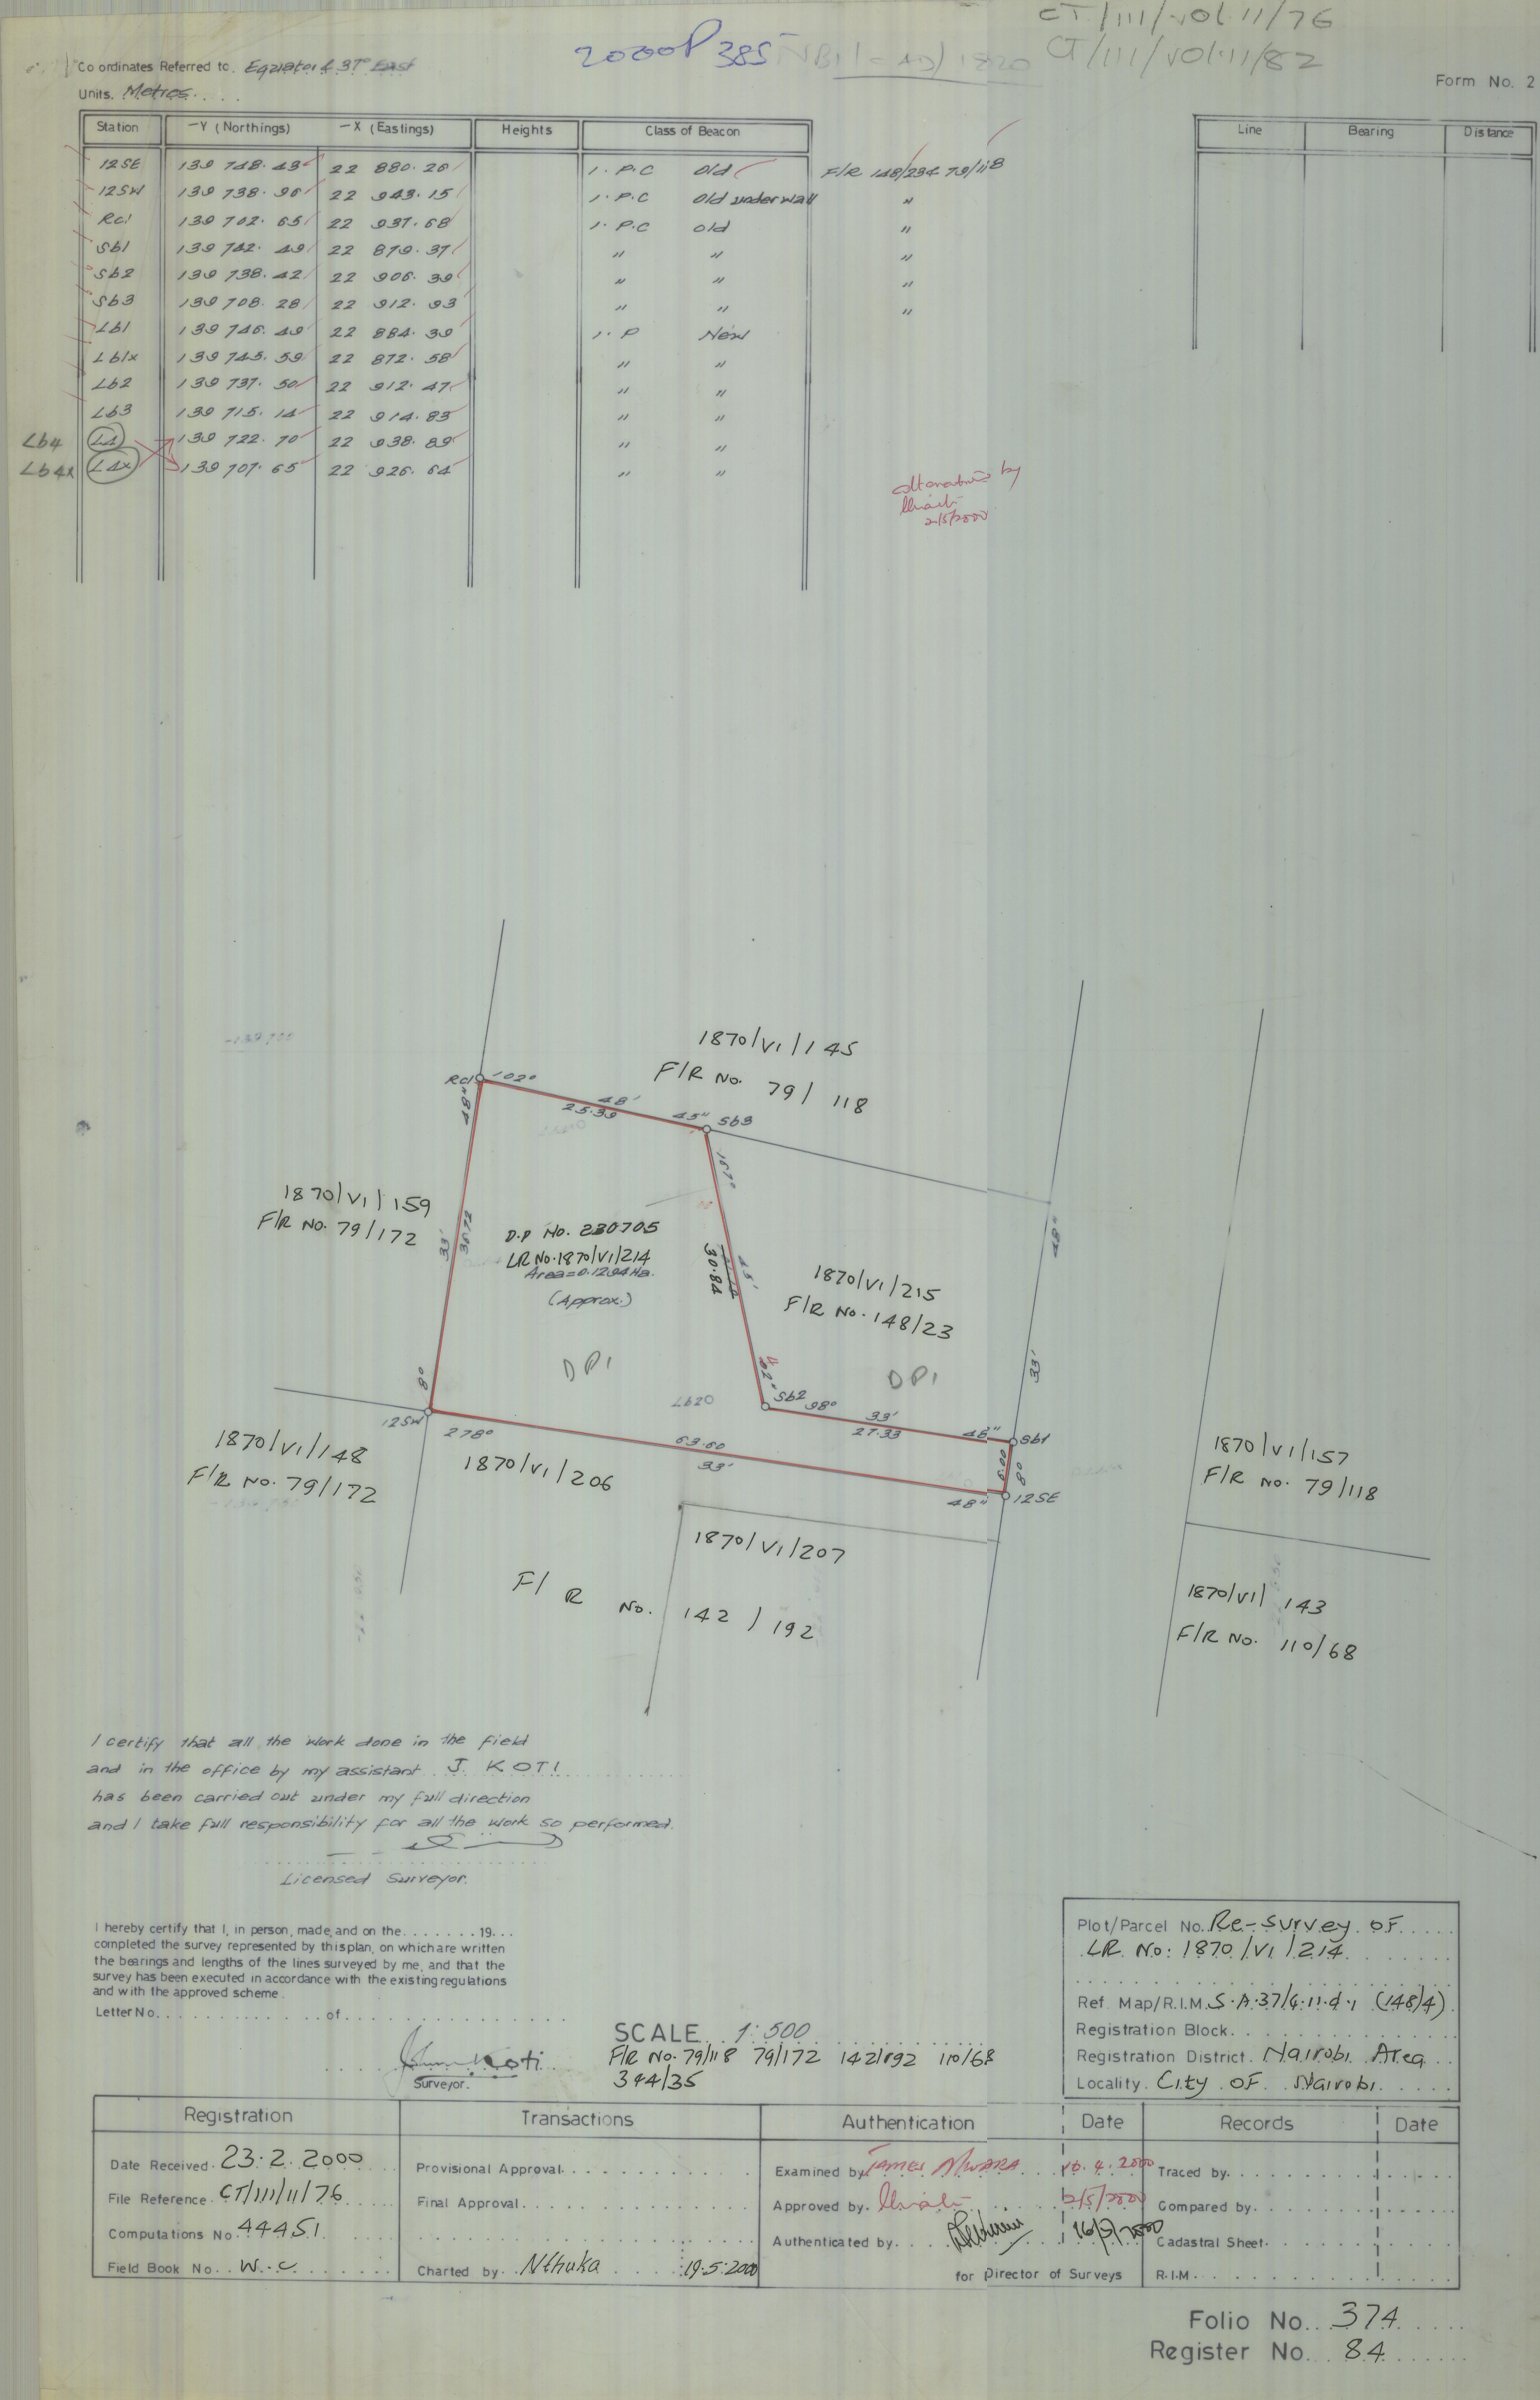 CT/III/vol.11/76
2000P385
CT/III/vol.11/82
Co ordinates Referred to. Equator & 37° East
Form No. 2
Units. Metres
Station —Y (Northings) —X (Eastings) Heights Class of Beacon
Line Bearing Distance
12SE 139 748.43 22 880.26 I.P.C Old F/R 148/234 79/118
12SW 139 738.96 22 943.15 I.P.C Old under wall "
Rc1 139 702.65 22 937.68 I.P.C old "
Sb1 139 742.49 22 879.37 " " "
Sb2 139 738.42 22 906.39 " " "
Sb3 139 708.28 22 912.93 " " "
Lb1 139 746.49 22 884.39 I.P New
Lb1x 139 745.59 22 872.58 " "
Lb2 139 737.50 22 912.47 " "
Lb3 139 715.14 22 914.83 " "
Lb4 L4 139 722.70 22 938.89 " "
Lb4x L4x 139 707.65 22 926.64 " "
alterations by
2/5/2000
1870/VI/145
F/R No. 79/118
Rc1 102° 48' 45" Sb3
25.39
48"
167°
1870/VI/159
F/R No. 79/172
33'
36.72
D.P No. 230705
LR No. 1870/VI/214
Area=0.1294Ha.
(Approx.)
30.84
45'
1870/VI/215
F/R No. 148/23
48"
33'
DP1
DP1
8°
Lb20
Sb2 98° 33' 48" Sb1
27.33
12SW
278° 63.60 33' 48" 12SE
6.00
8°
1870/VI/148
F/R No. 79/172
1870/VI/206
1870/VI/157
F/R No. 79/118
1870/VI/207
F/R No. 142/192
1870/VI/143
F/R No. 110/68
I certify that all the work done in the field
and in the office by my assistant J. KOTI
has been carried out under my full direction
and I take full responsibility for all the work so performed.
Licensed Surveyor.
I hereby certify that I, in person, made, and on the.......19...
completed the survey represented by this plan, on which are written
the bearings and lengths of the lines surveyed by me, and that the
survey has been executed in accordance with the existing regulations
and with the approved scheme.
Letter No. of
Koti
Surveyor.
SCALE 1:500
F/R No. 79/118 79/172 142/192 110/68
344/35
Plot/Parcel No. Re-survey of
LR. No: 1870/VI/214
Ref. Map/R.I.M. S.A.37/G.11.d.1 (148/4)
Registration Block.
Registration District. Nairobi Area
Locality. City OF Nairobi
Registration Transactions Authentication Date Records Date
Date Received. 23.2.2000
Provisional Approval.
Examined by James 16.4.2000
Traced by.
File Reference. CT/III/11/76
Final Approval.
Approved by. 2/5/2000
Compared by.
Computations No. 44451
Authenticated by. 16/5/2000
Cadastral Sheet.
Field Book No. W.C
Charted by. Nthuka 19.5.2000
for Director of Surveys
R.I.M.
Folio No. 374
Register No. 84